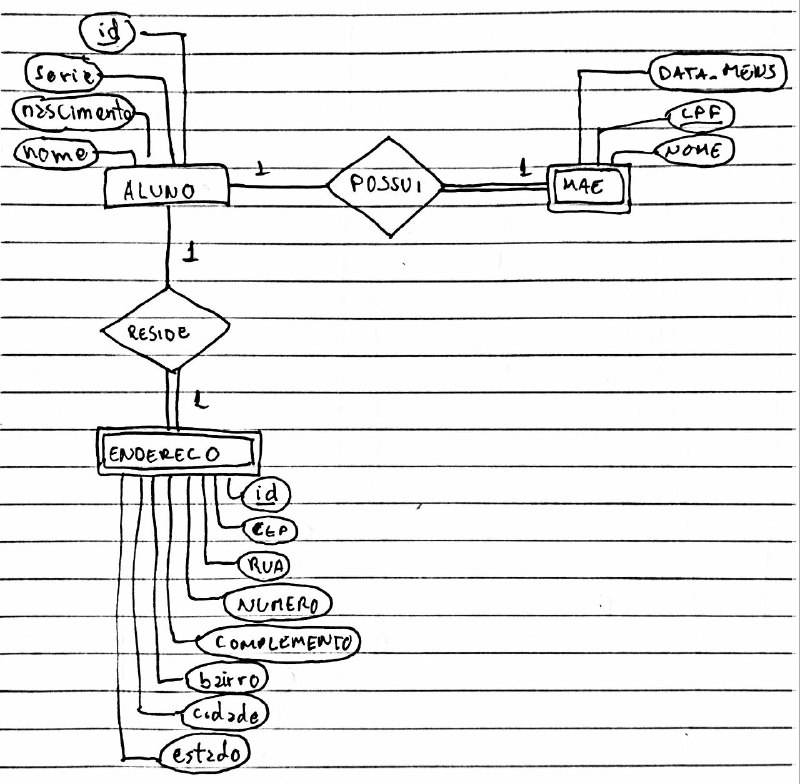 id
serie
nascimento
nome
ALUNO
1
POSSUI
1
MAE
DATA_MENS
CPF
NOME
1
RESIDE
1
ENDERECO
id
CEP
RUA
NUMERO
COMPLEMENTO
bairro
cidade
estado